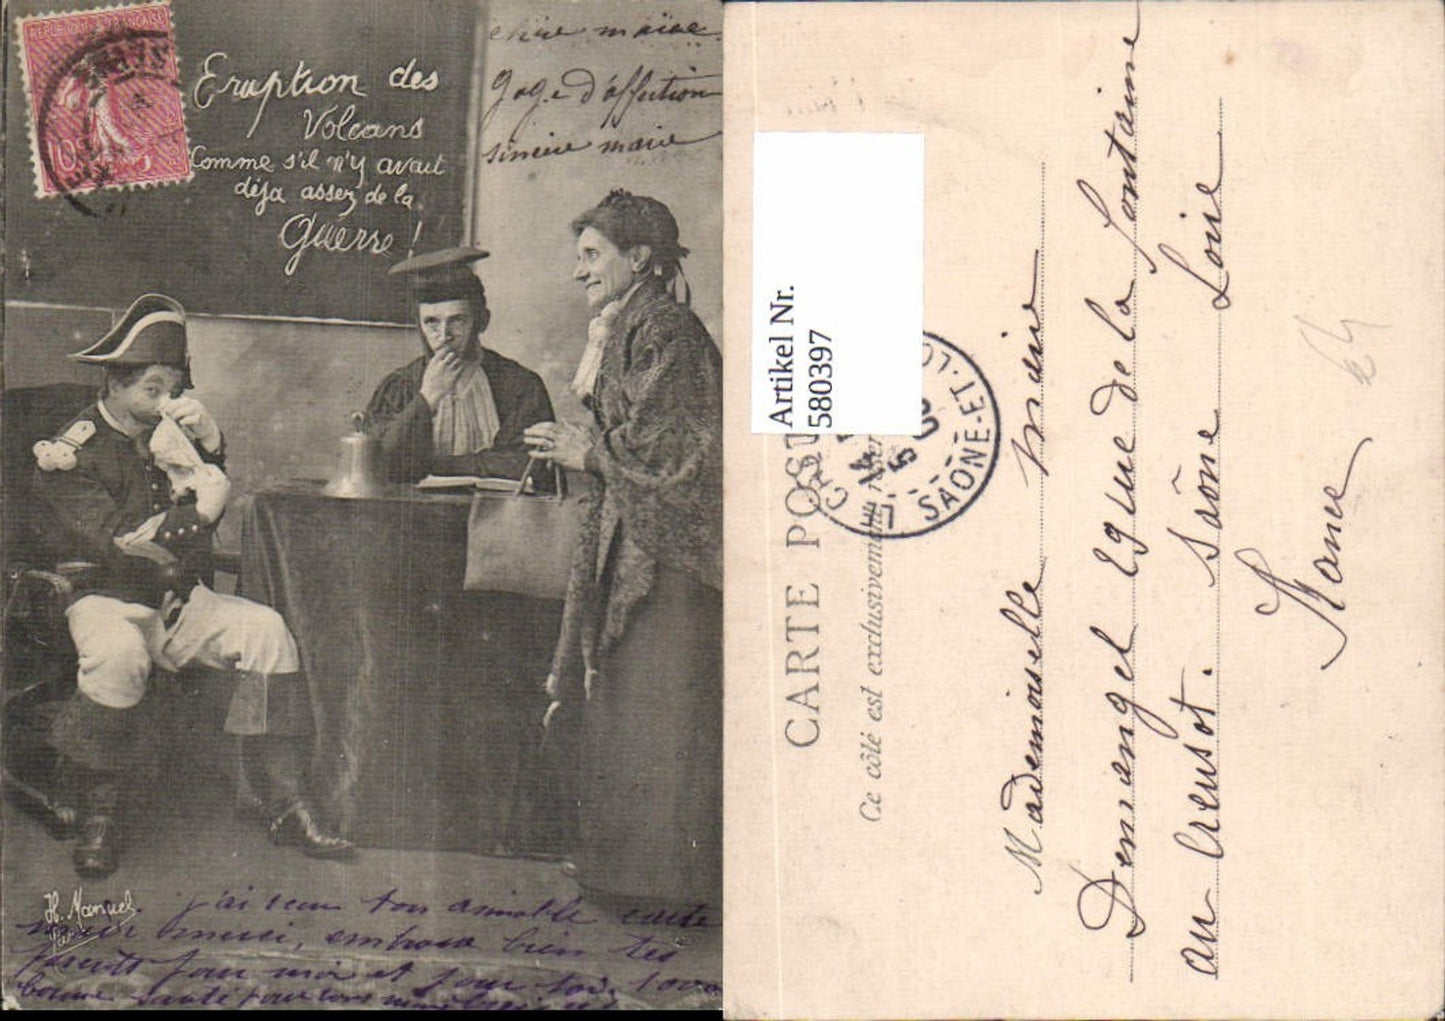 REPUBLIQUE FRANÇAISE
10
Eruption des
Volcans
Comme s'il n'y avait
déja assez de la
Guerre !
chère marie
gage d'affection
sincère marie
H. Manuel
Paris
j'ai recu ton aimable carte
merci, embrasse bien tes
parents pour moi et pour toi. 1000
bonne santé pour vous
Artikel Nr.
580397
CARTE POSTALE
Ce côté est exclusivement réservé
SAONE-ET-LOIRE
Mademoiselle marie
Demangel rue de la fontaine
au Creusot. Saône Loire